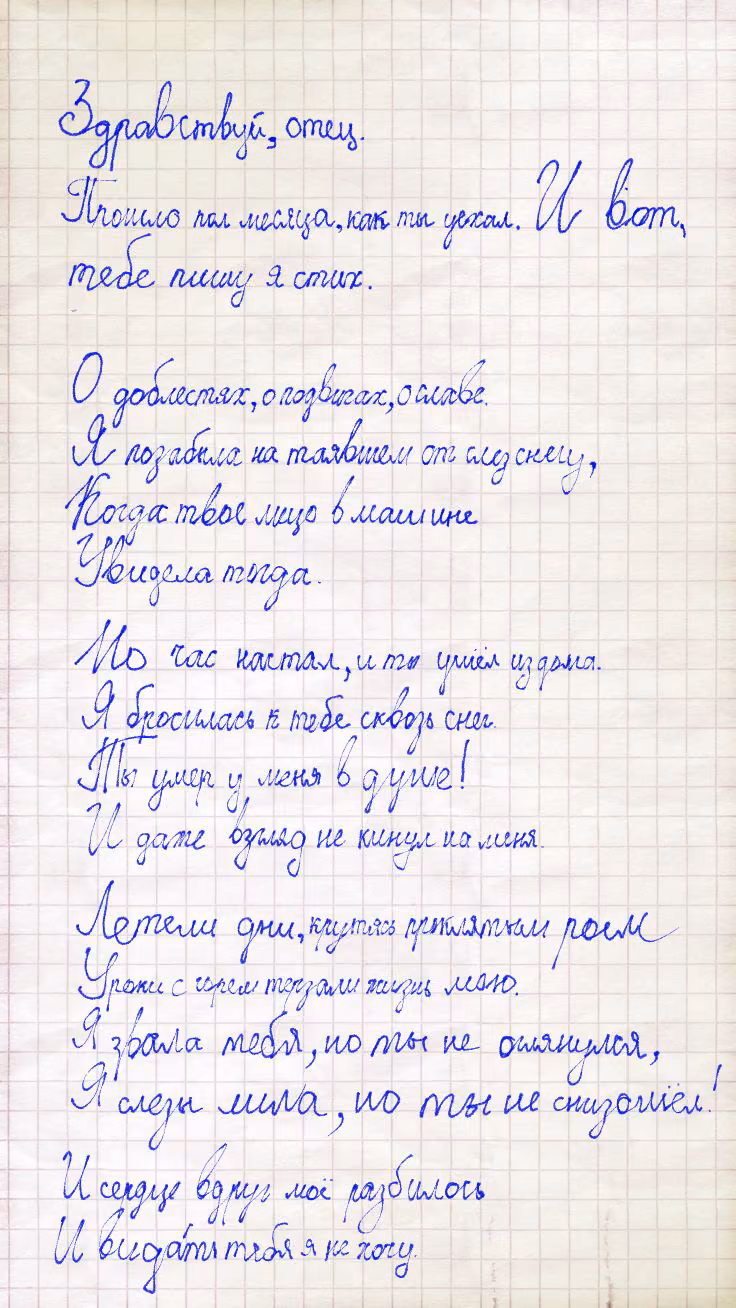 Здравствуй, отец.
Прошло пол месяца, как ты уехал. И вот,
тебе пишу я стих.
О доблестях, о подвигах, о славе.
Я позабыла на таявшем от слез снегу,
Когда твое лицо в машине
Увидела тогда.
Но час настал, и ты ушёл из дома.
Я бросилась к тебе сквозь снег.
Ты умер у меня в душе!
И даже взгляд не кинул на меня.
Летели дни, крутясь проклятым роем
Уроки с горем терзали жизнь мою.
Я звала тебя, но ты не оглянулся,
Я слезы лила, но ты не снизошёл!
И сердце вдруг моё разбилось
И вида́ть тебя я не хочу.